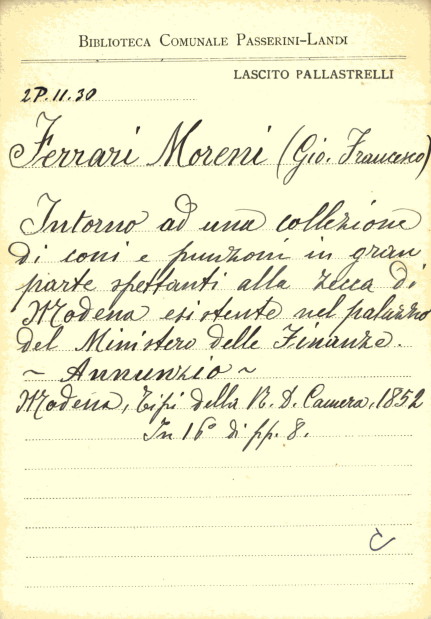 BIBLIOTECA COMUNALE PASSERINI-LANDI
LASCITO PALLASTRELLI
2P.11.30
Ferrari Moreni (Gio. Francesco)
Intorno ad una collezione
di coni e punzoni in gran
parte spettanti alla zecca di
Modena esistente nel palazzo
del Ministero delle Finanze.
~ Annunzio ~
Modena, Tipi della R. D. Camera, 1852
In 16° di pp. 8.